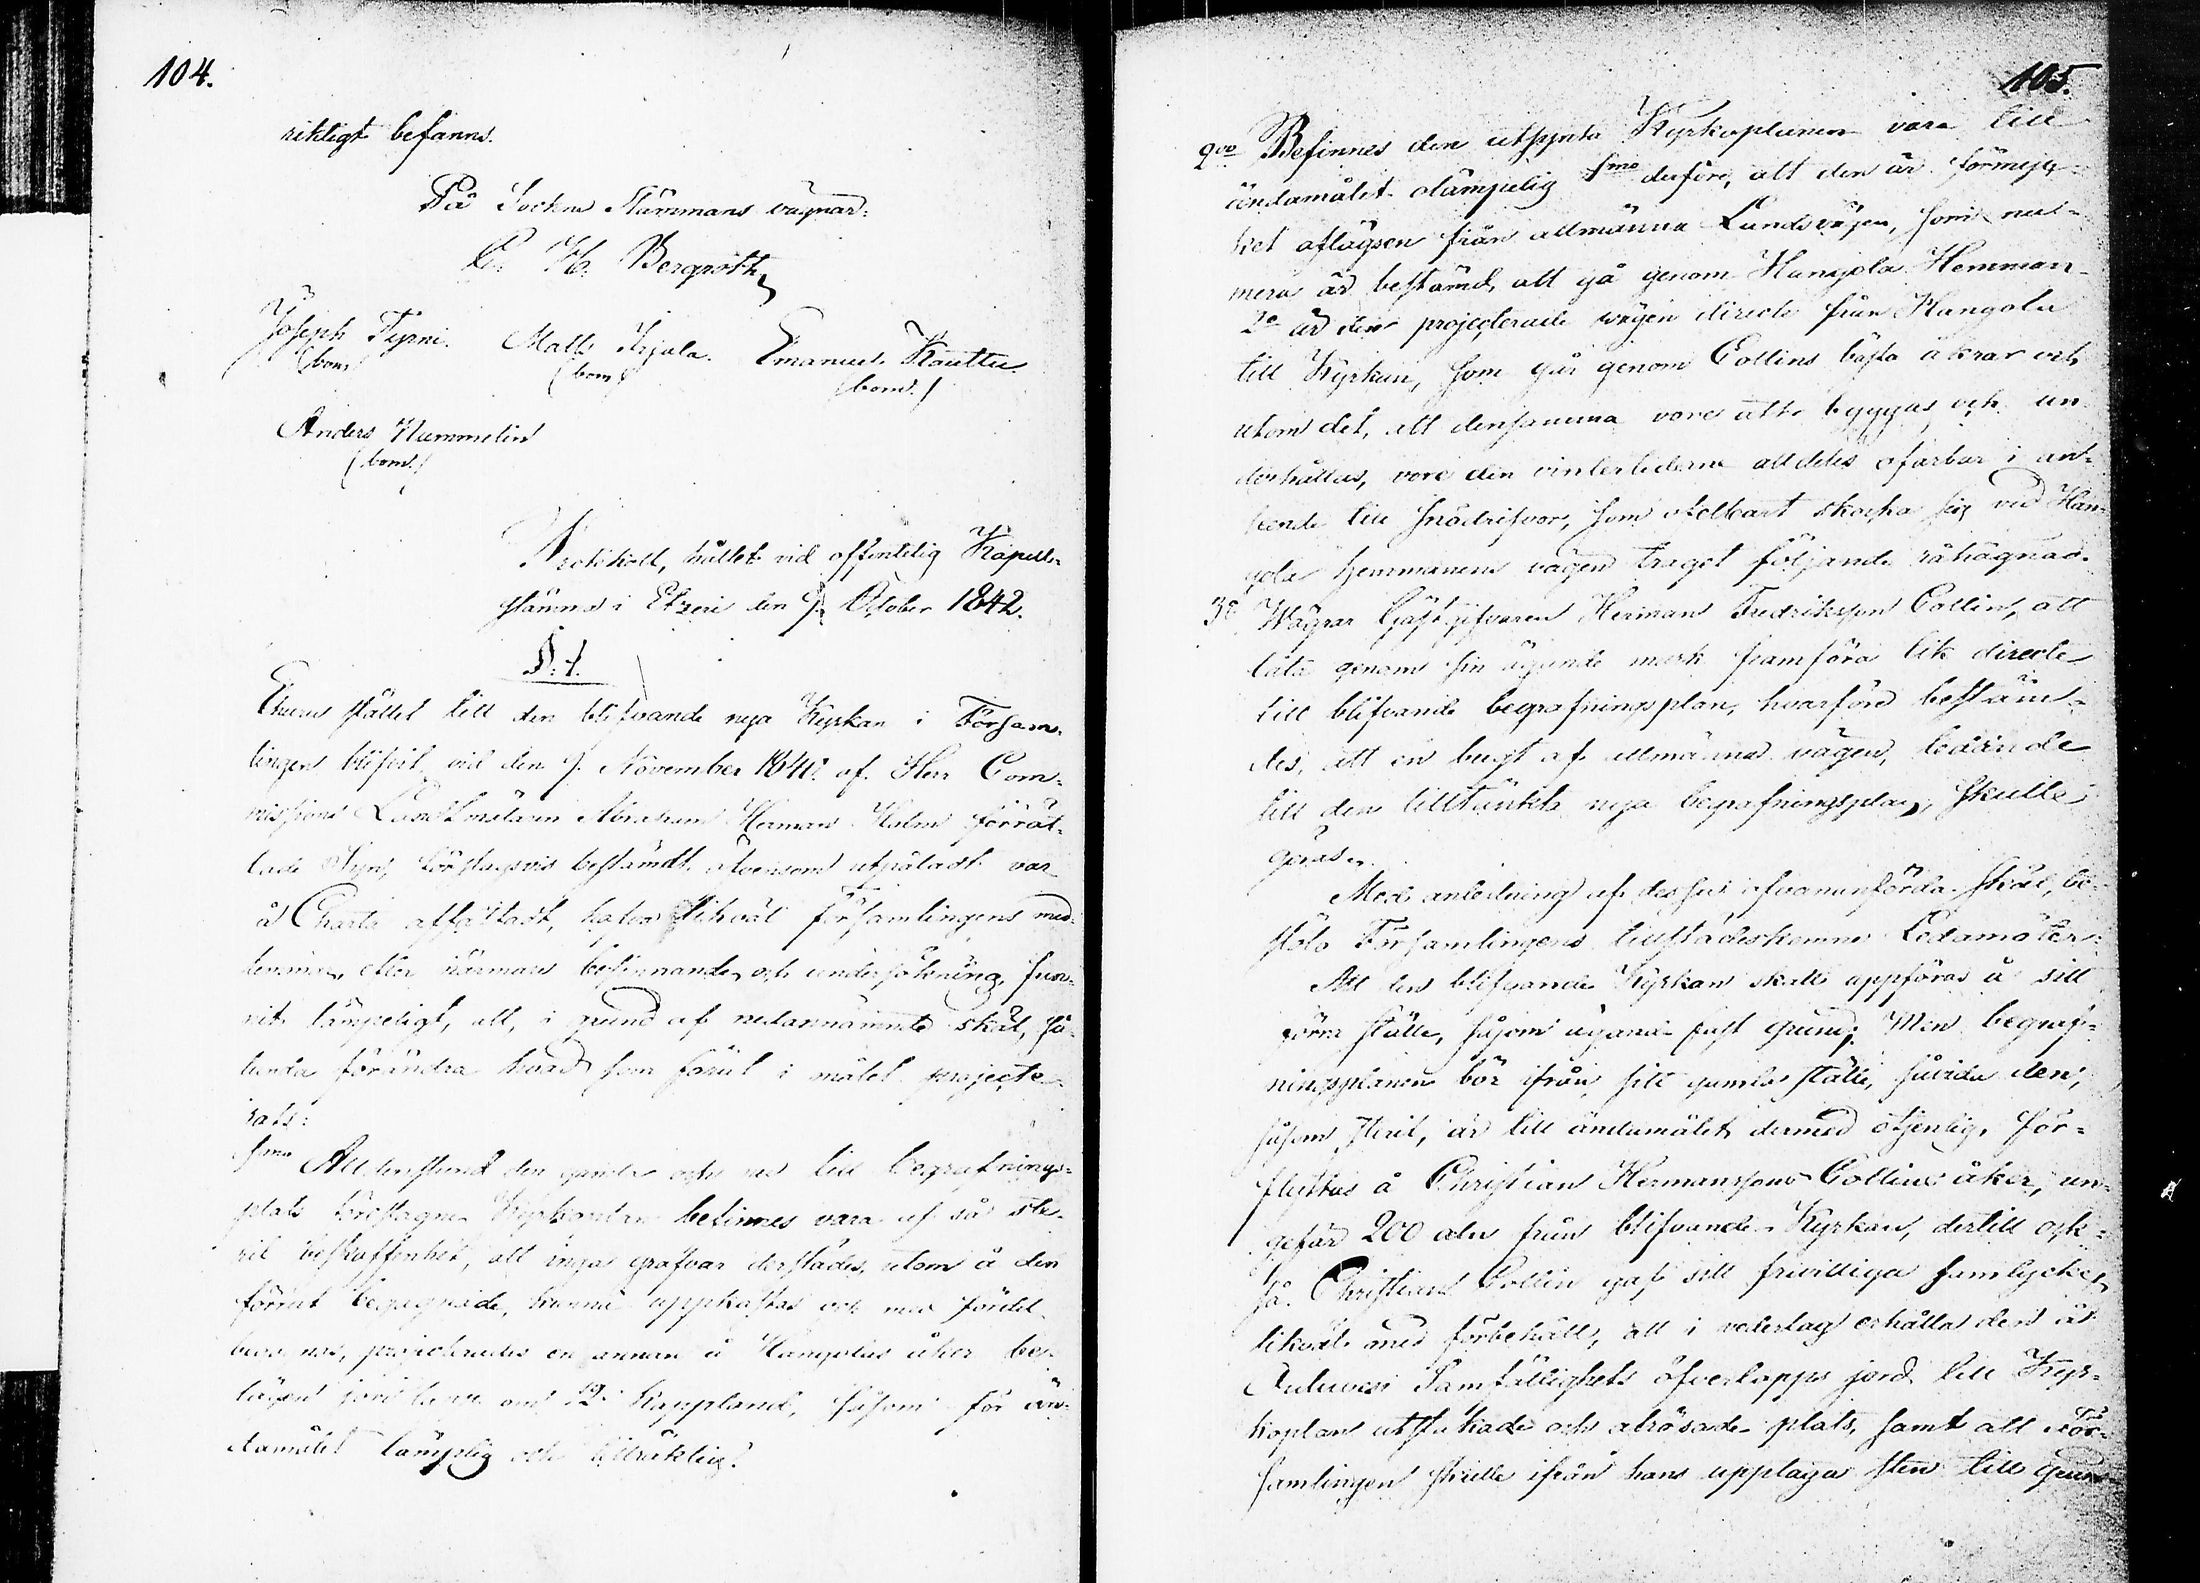 104.
riktigt befanns.
På Sockne Stämmans vägnar:
C. H. Bergroth
Joseph Tyrni. Matts Irjala. Emanuel Kauttu.
(bom.) (bom.) (bom.)
Anders Hummelin
(bom.)
Protokoll, hållet vid offentelig Kapell-
stämma i Etseri den 9. October 1842.
§. 1.
Ehuru stället till den blifvande nya Kyrkan i Församm-
lingen blifvit vid den 9. November 1840 af Herr Com-
missions Landtmätaren Abraham Herman Holm förrät-
tade Syn, förslagsvis bestämdt, äfvensom utpåladt var
å Charta affattadt, hafva likväl församlingens med-
lemmar, efter närmare besinnande och undersökning, fun-
nit lämpeligt, att, i grund af nedannämnde skäl, så-
lunda förändra hvad som förut i målet projecte-
rats:
1mo Alldenstund den gamla och nu till begrafnings-
plats föreslagna Kyrkoplan befinnes vara af så ste-
ril beskaffenhet, att inga grafvar derstädes, utom å den
förrut begagnade, kunna uppkastas och med fördel
, projecterades en annan å Hangolas åker be-
lägen jord om 12 Kappland, såsom för än-
damålet lämplig och tillräcklig.
105.
2do Befinnes den utsynta Kyrkoplanen vara till
ändamålet olämpelig 1mo derföre, att den är förmyc-
ket aflägsen från allmänna Landsvägen, som nu-
mera är bestämd, att gå genom Hangola Hemman
2o är den projecterade vägen directe från Hangola
till Kyrkan, som går genom Collins bästa åkrar och
utom det, att densamma vore att byggas och un-
derhållas, vore den vintertiderne alldeles ofarbar i an-
seende till snödrifvor, som otelbart skocka sig vid Han-
gola hemmanens vägen traget följande råhägnad.
3o Vägrar Gästgifvaren Herman Fredriksson Collin, att
låta genom sin ägande mark framföra lik directe
till blifvande begrafningsplan, hvarföre bestäm-
des, att en bugt af allmänna vägen, ledande
till den tilltänkta nya begrafningsplan, skulle
göras.
Med anledning af dessa ofvananförda skäl, be-
slöto Församlingens tillstädeskomne Ledamöter:
Att den blifvande Kyrkan skall uppföras å sitt
förra ställe, såsom ägande fast grund; Men begraf-
ningsplanen bör ifrån sitt gamla ställe, såvida den,
såsom steril, är till ändamålet dermed otjenlig, för-
flyttas å Christian Hermanssons Collins åker, un-
gefär 200 aln från blifvande Kyrkan, dertill ock-
så Christian Collin gaf sitt frivilliga samtycke,
likväl med förbehåll, att i vederlag erhålla den å
Samfällighets öfverlopps jord till Kyr-
koplan utstakade och alrösade plats, samt att För-
samlingen skulle ifrån hans upptaga sten till grun-